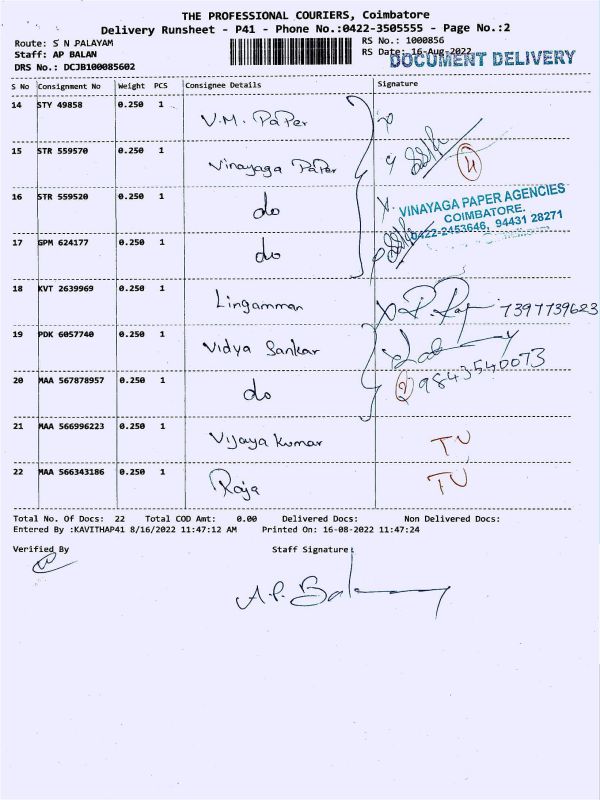 THE PROFESSIONAL COURIERS, Coimbatore
Delivery Runsheet - P41 - Phone No.:0422-3505555 - Page No.:2
Route: S N PALAYAM RS No.: 1000856
Staff: AP BALAN RS Date: 16-Aug-2022
DOCUMENT DELIVERY
DRS No.: DCJB100085602
S No Consignment No Weight PCS Consignee Details Signature
14 STY 49858 0.250 1 V.M. Paper
15 STR 559570 0.250 1 Vinayaga Paper
4
16 STR 559520 0.250 1 do
VINAYAGA PAPER AGENCIES
COIMBATORE.
0422-2453646, 94431 28271
17 GPM 624177 0.250 1 do
18 KVT 2639969 0.250 1 Lingamman 7397739623
19 PDK 6057740 0.250 1 Vidya Sankar
20 MAA 567878957 0.250 1 do 2 9843540073
21 MAA 566996223 0.250 1 Vijaya Kumar TU
22 MAA 566343186 0.250 1 Raja TU
Total No. Of Docs: 22 Total COD Amt: 0.00 Delivered Docs: Non Delivered Docs:
Entered By :KAVITHAP41 8/16/2022 11:47:12 AM Printed On: 16-08-2022 11:47:24
Verified By Staff Signature:
A.P. Balan